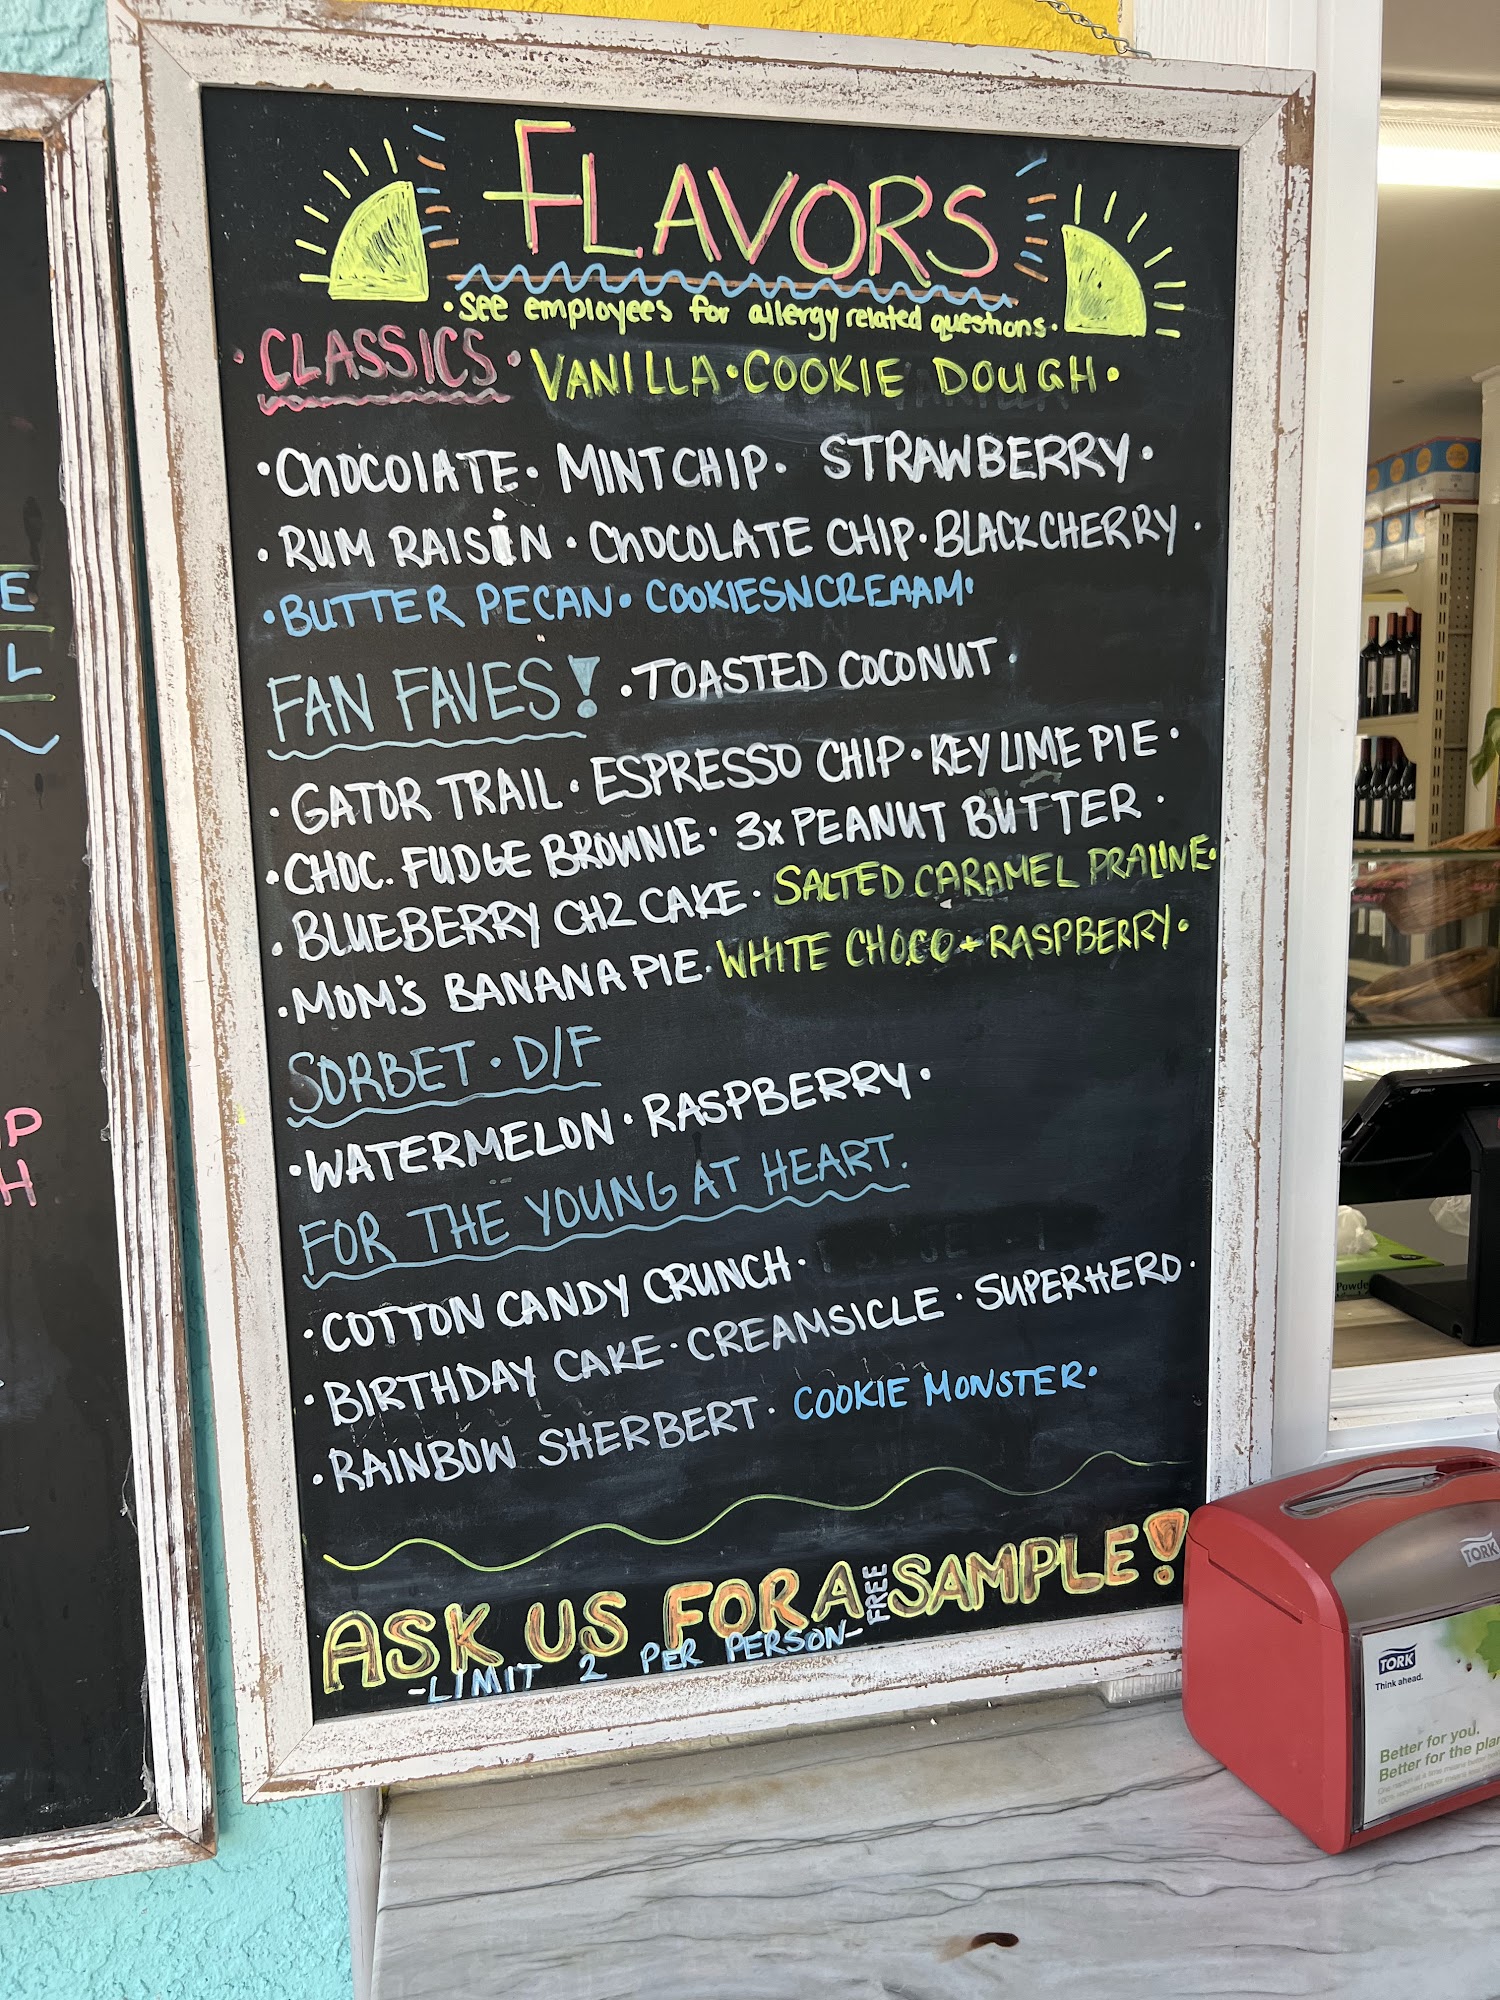 FLAVORS
•See employees for allergy related questions•
•CLASSICS• VANILLA•COOKIE DOUGH•
•CHOCOLATE• MINT CHIP• STRAWBERRY•
•RUM RAISIN•CHOCOLATE CHIP•BLACK CHERRY•
•BUTTER PECAN•COOKIESNCREAAM•
FAN FAVES! •TOASTED COCONUT•
•GATOR TRAIL•ESPRESSO CHIP•KEY LIME PIE•
•CHOC. FUDGE BROWNIE• 3x PEANUT BUTTER•
•BLUEBERRY CHZ CAKE•SALTED CARAMEL PRALINE•
•MOM'S BANANA PIE•WHITE CHOCO + RASPBERRY•
SORBET•D/F
•WATERMELON•RASPBERRY•
FOR THE YOUNG AT HEART.
•COTTON CANDY CRUNCH•
•BIRTHDAY CAKE•CREAMSICLE•SUPERHERO•
•RAINBOW SHERBERT•COOKIE MONSTER•
ASK US FOR A FREE SAMPLE!
-LIMIT 2 PER PERSON-
E
L
P
H
TORK
TORK
Think ahead.
Better for you.
Better for the plan